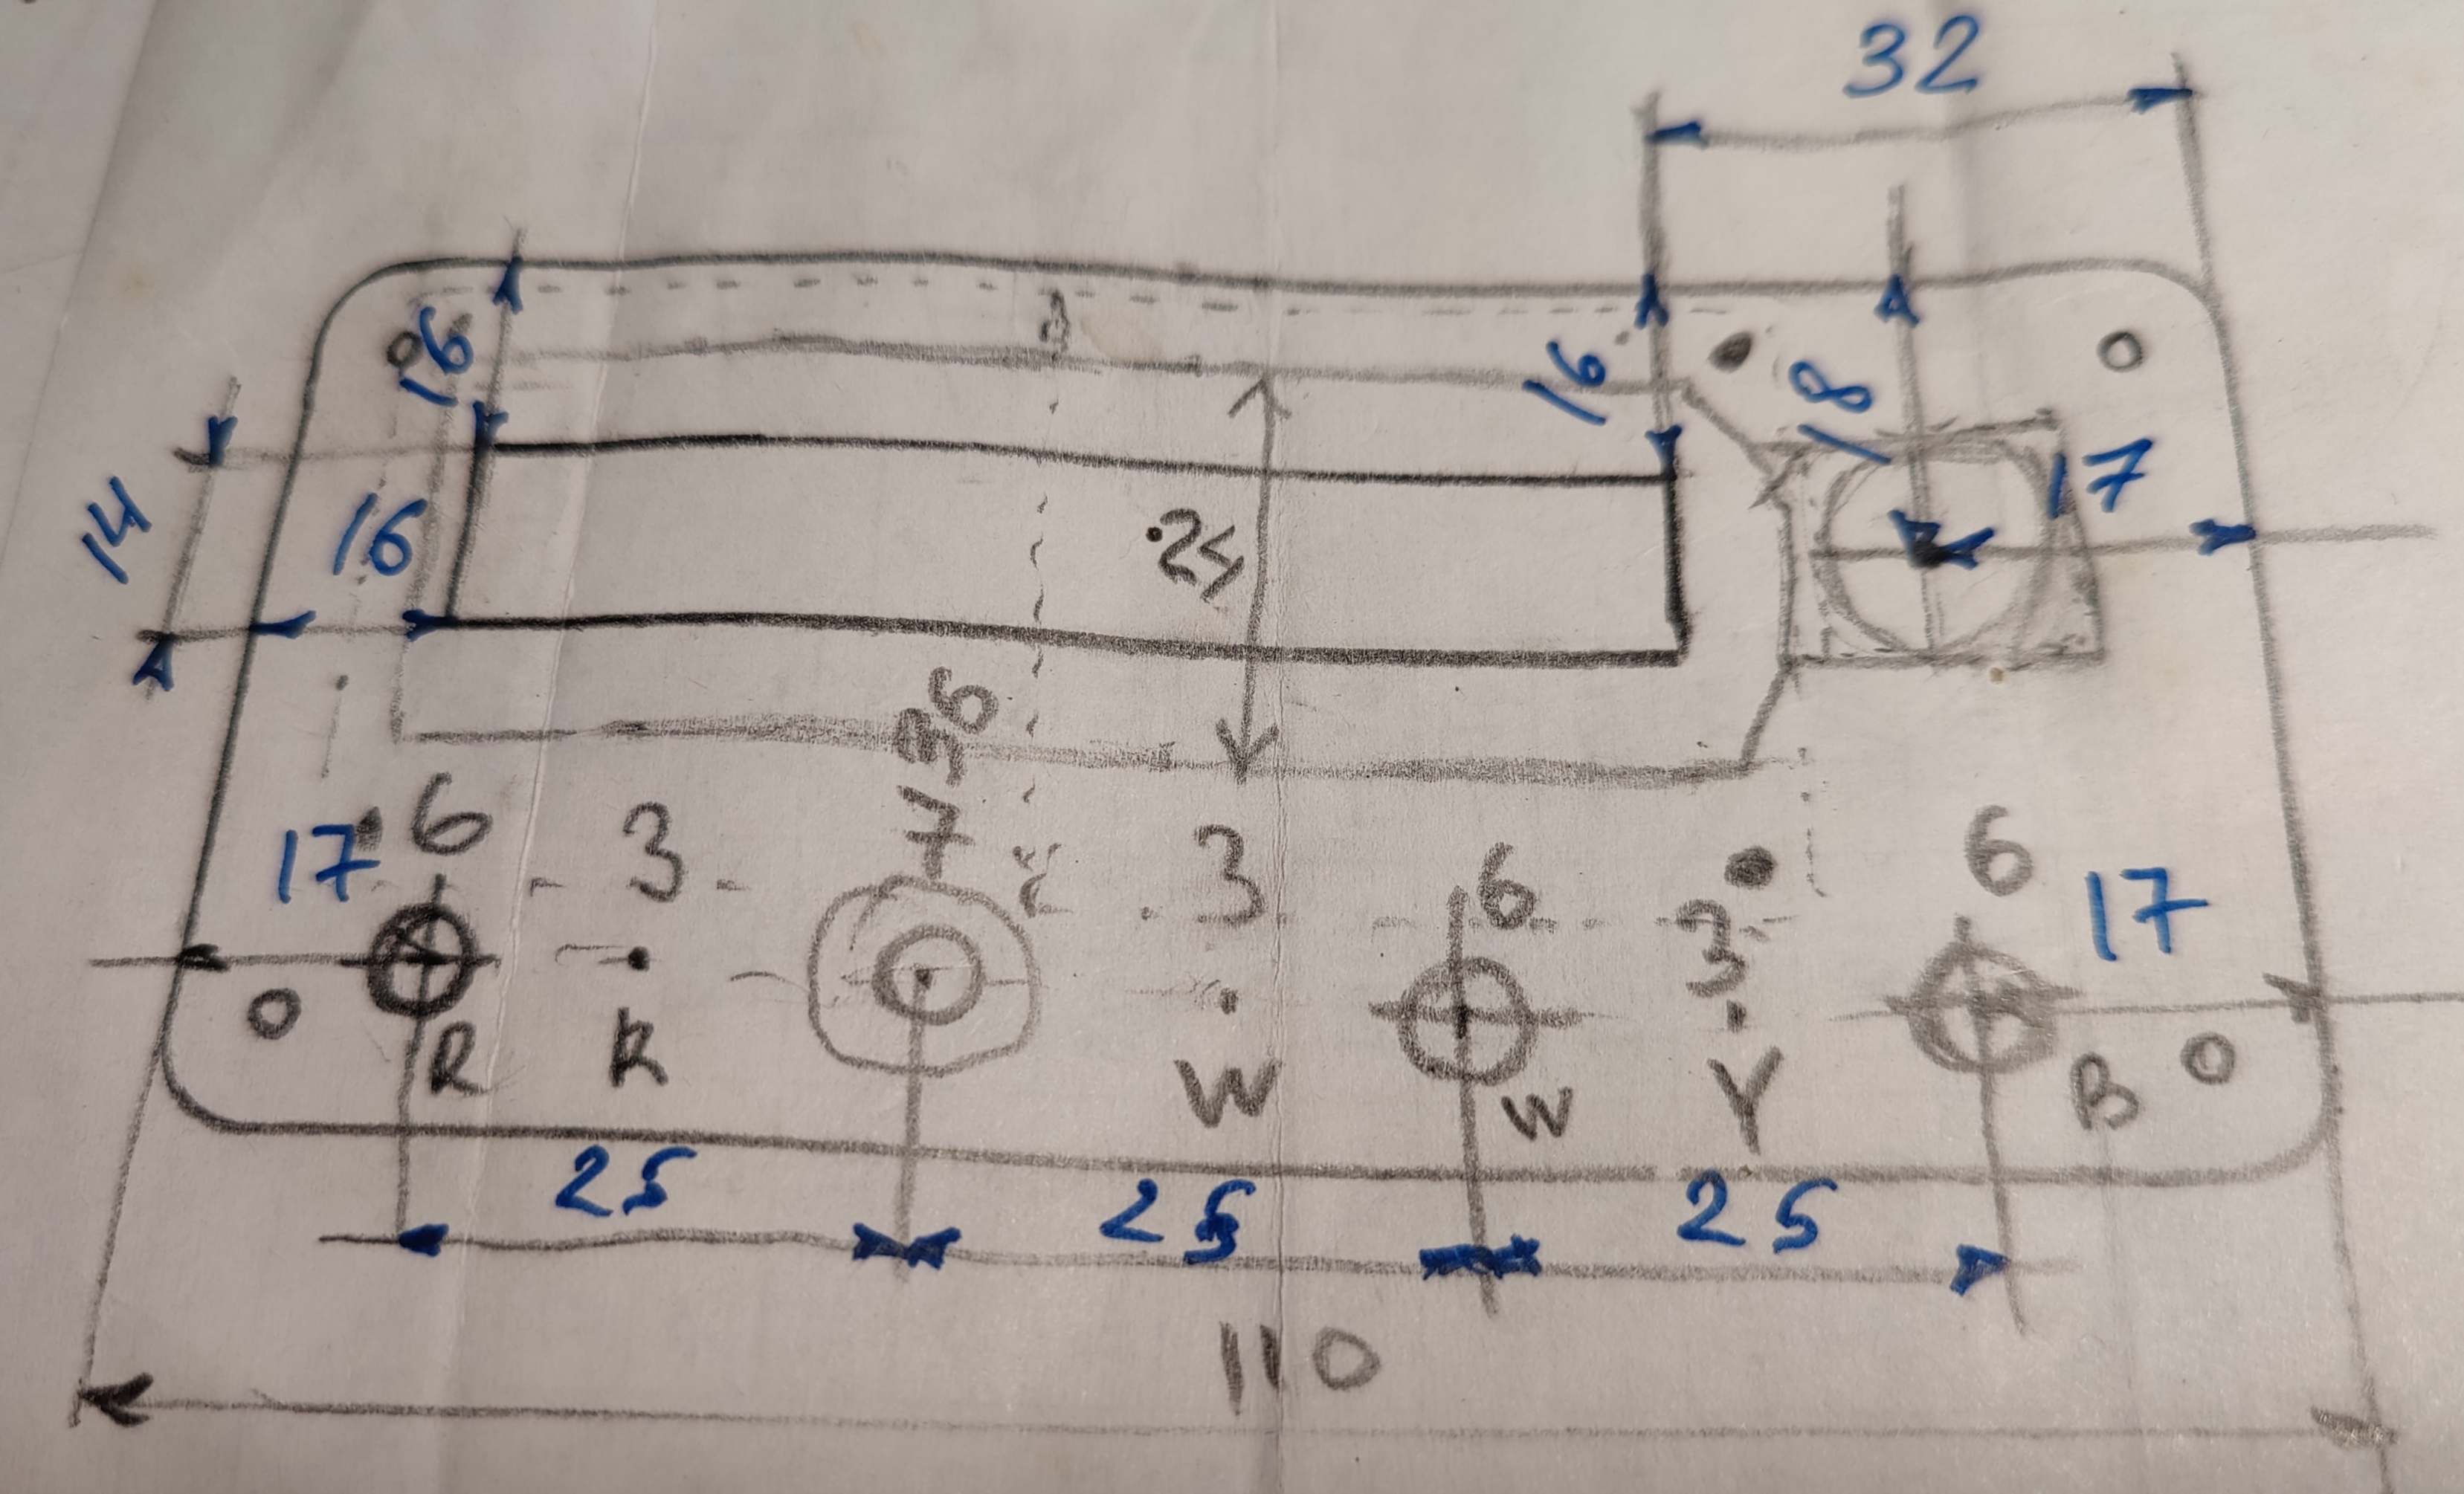 32
16
16
18
14
16
24
17
3,6
17 6 3 7 3 6 3 6 17
R R W W Y B
25 25 25
110